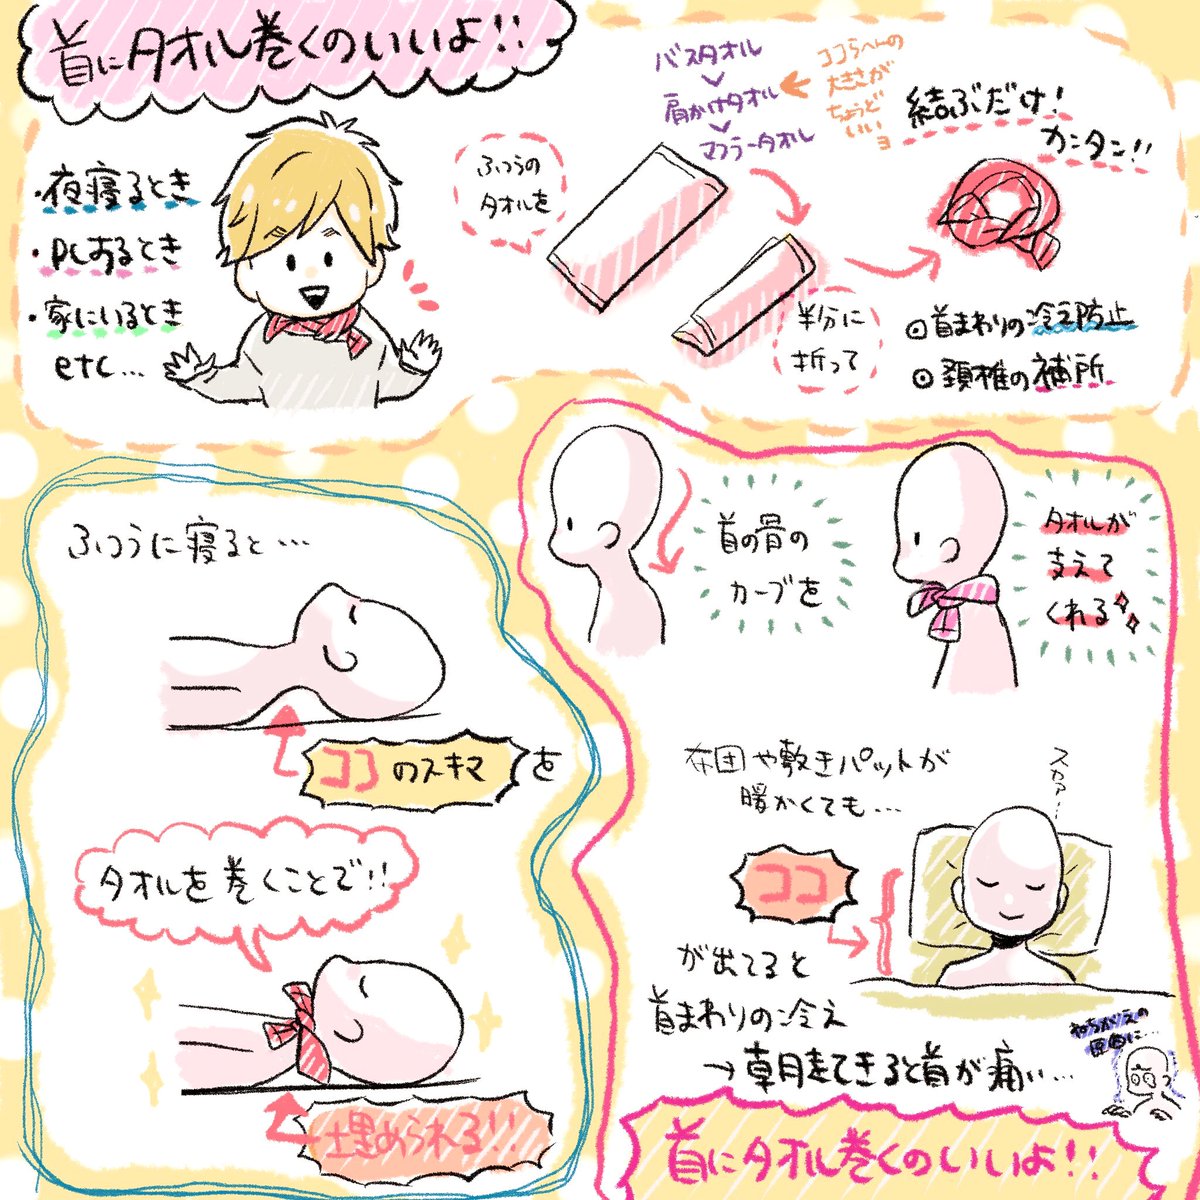 首にタオル巻くのいいよ!!
・夜寝るとき
・PCおるとき
・家にいるとき
etc…
ふつうの
タオルを
バスタオル
肩かけタオル
マフラータオル
ココらへんの
大きさが
ちょうど
いい
ョ
半分に
折って
結ぶだけ!
カンタン!!
⊙首まわりの冷え防止
⊙頚椎の補所
ふつうに寝ると…
ココのスキマを
タオルを巻くことで!!
埋められる!!
首の骨の
カーブを
タオルが
支えて
くれる
布団や敷きパットが
暖かくても…
スカァ…
ココ
が出てると
首まわりの冷え
→朝起きてきると首が痛い…
ねちがえの
原因に…
首にタオル巻くのいいよ!!